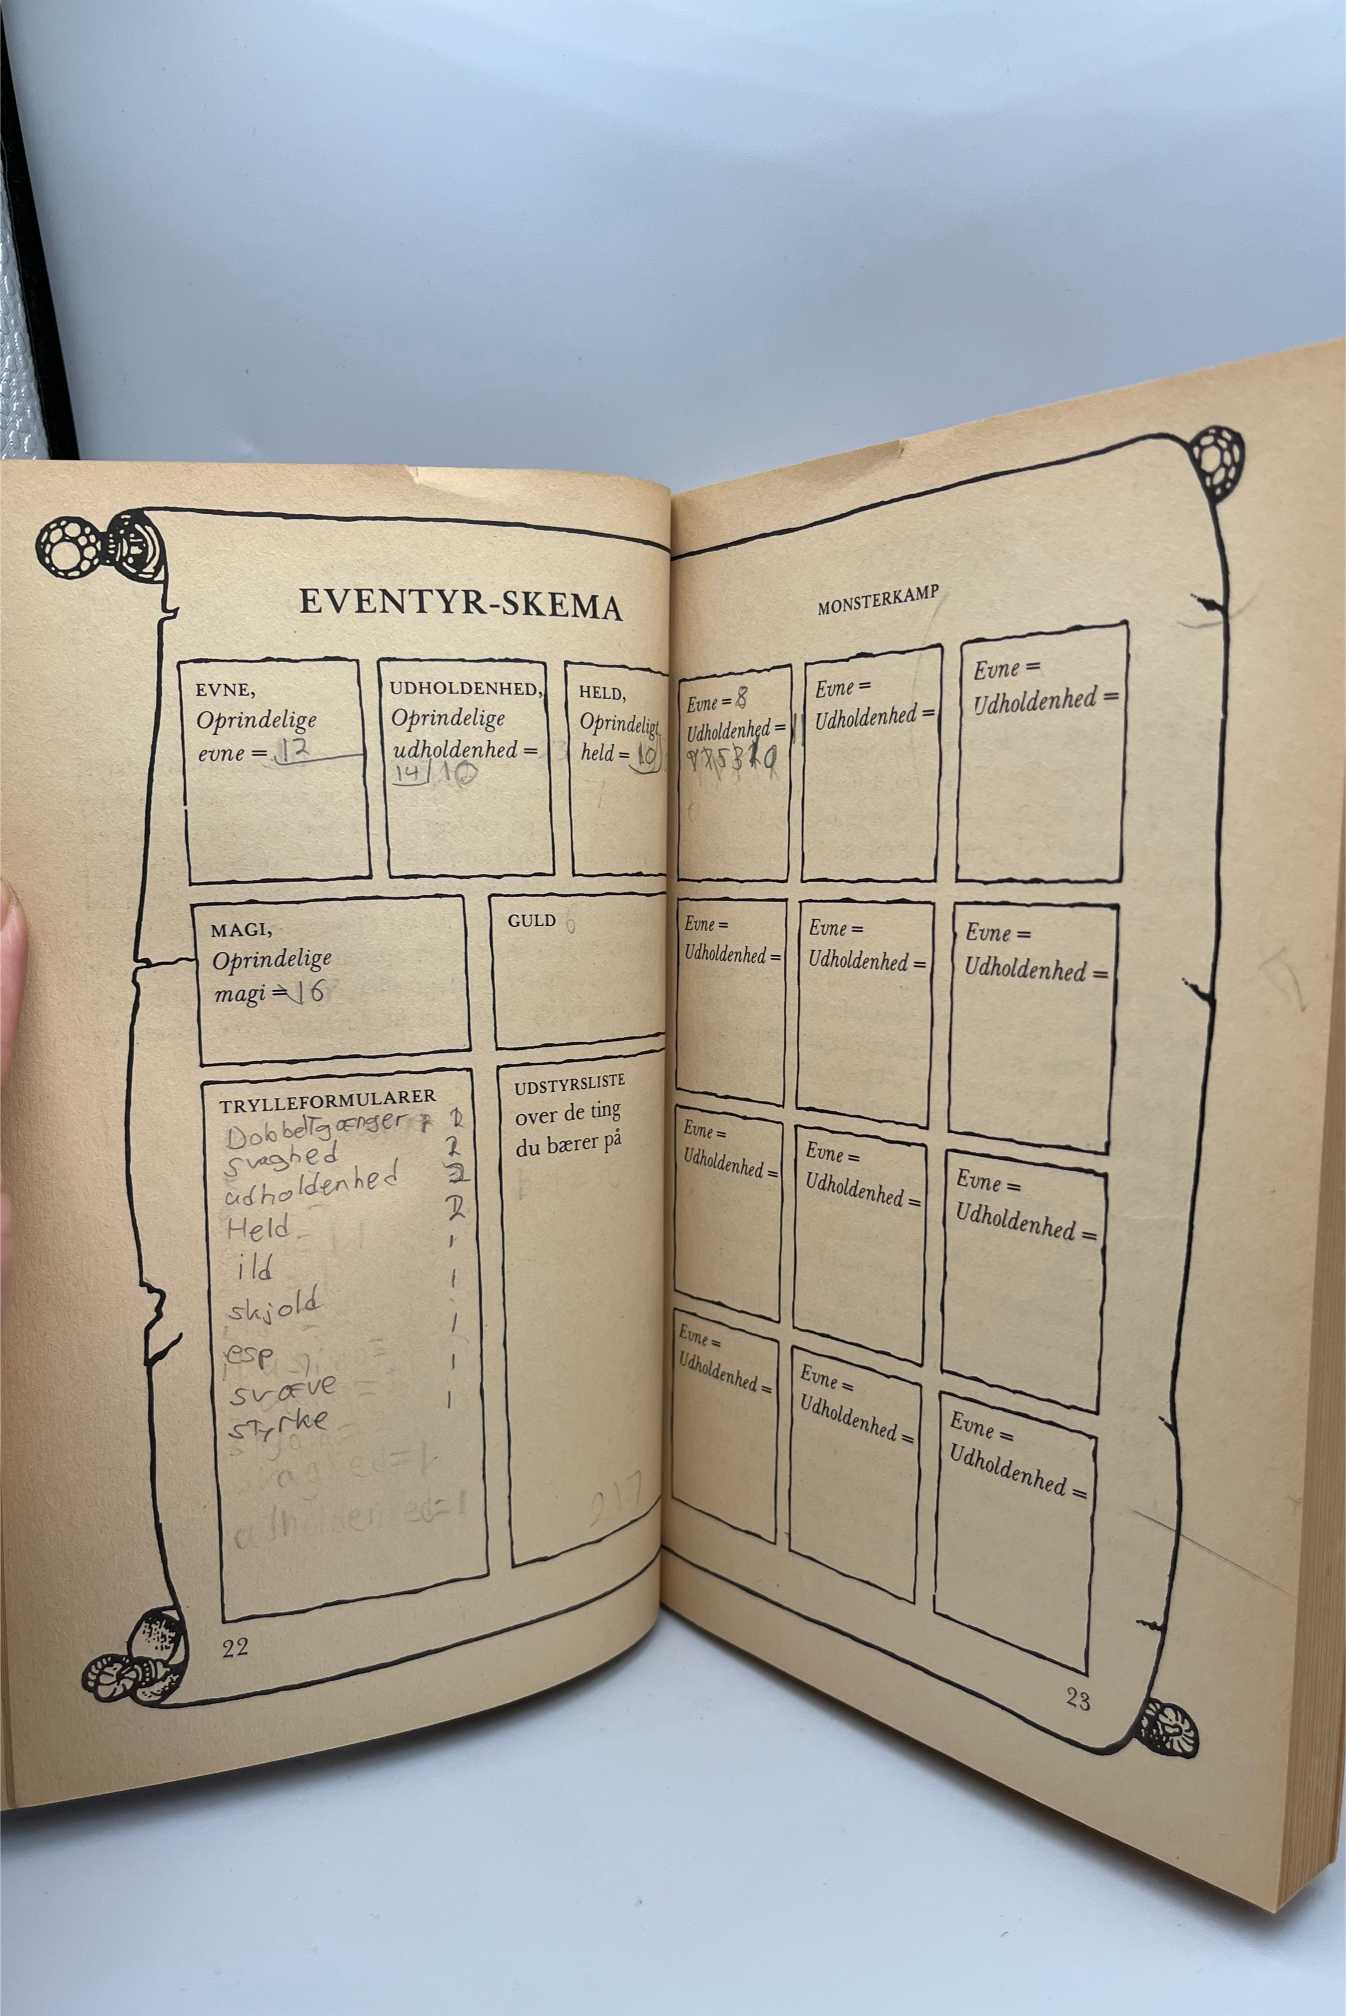 EVENTYR-SKEMA
EVNE,
Oprindelige
evne = 12
UDHOLDENHED,
Oprindelige
udholdenhed =
14/10
HELD,
Oprindeligt
held = 10
MAGI,
Oprindelige
magi = 16
GULD 6
TRYLLEFORMULARER
Dobbeltgænger 2
svaghed 2
udholdenhed 2
Held 2
ild 1
skjold 1
esp 1
svæve 1
styrke 1
svaghed=1
udholdenhed=1
UDSTYRSLISTE
over de ting
du bærer på
217
22
MONSTERKAMP
Evne = 8
Udholdenhed =
Evne =
Udholdenhed =
Evne =
Udholdenhed =
Evne =
Udholdenhed =
Evne =
Udholdenhed =
Evne =
Udholdenhed =
Evne =
Udholdenhed =
Evne =
Udholdenhed =
Evne =
Udholdenhed =
Evne =
Udholdenhed =
Evne =
Udholdenhed =
Evne =
Udholdenhed =
23